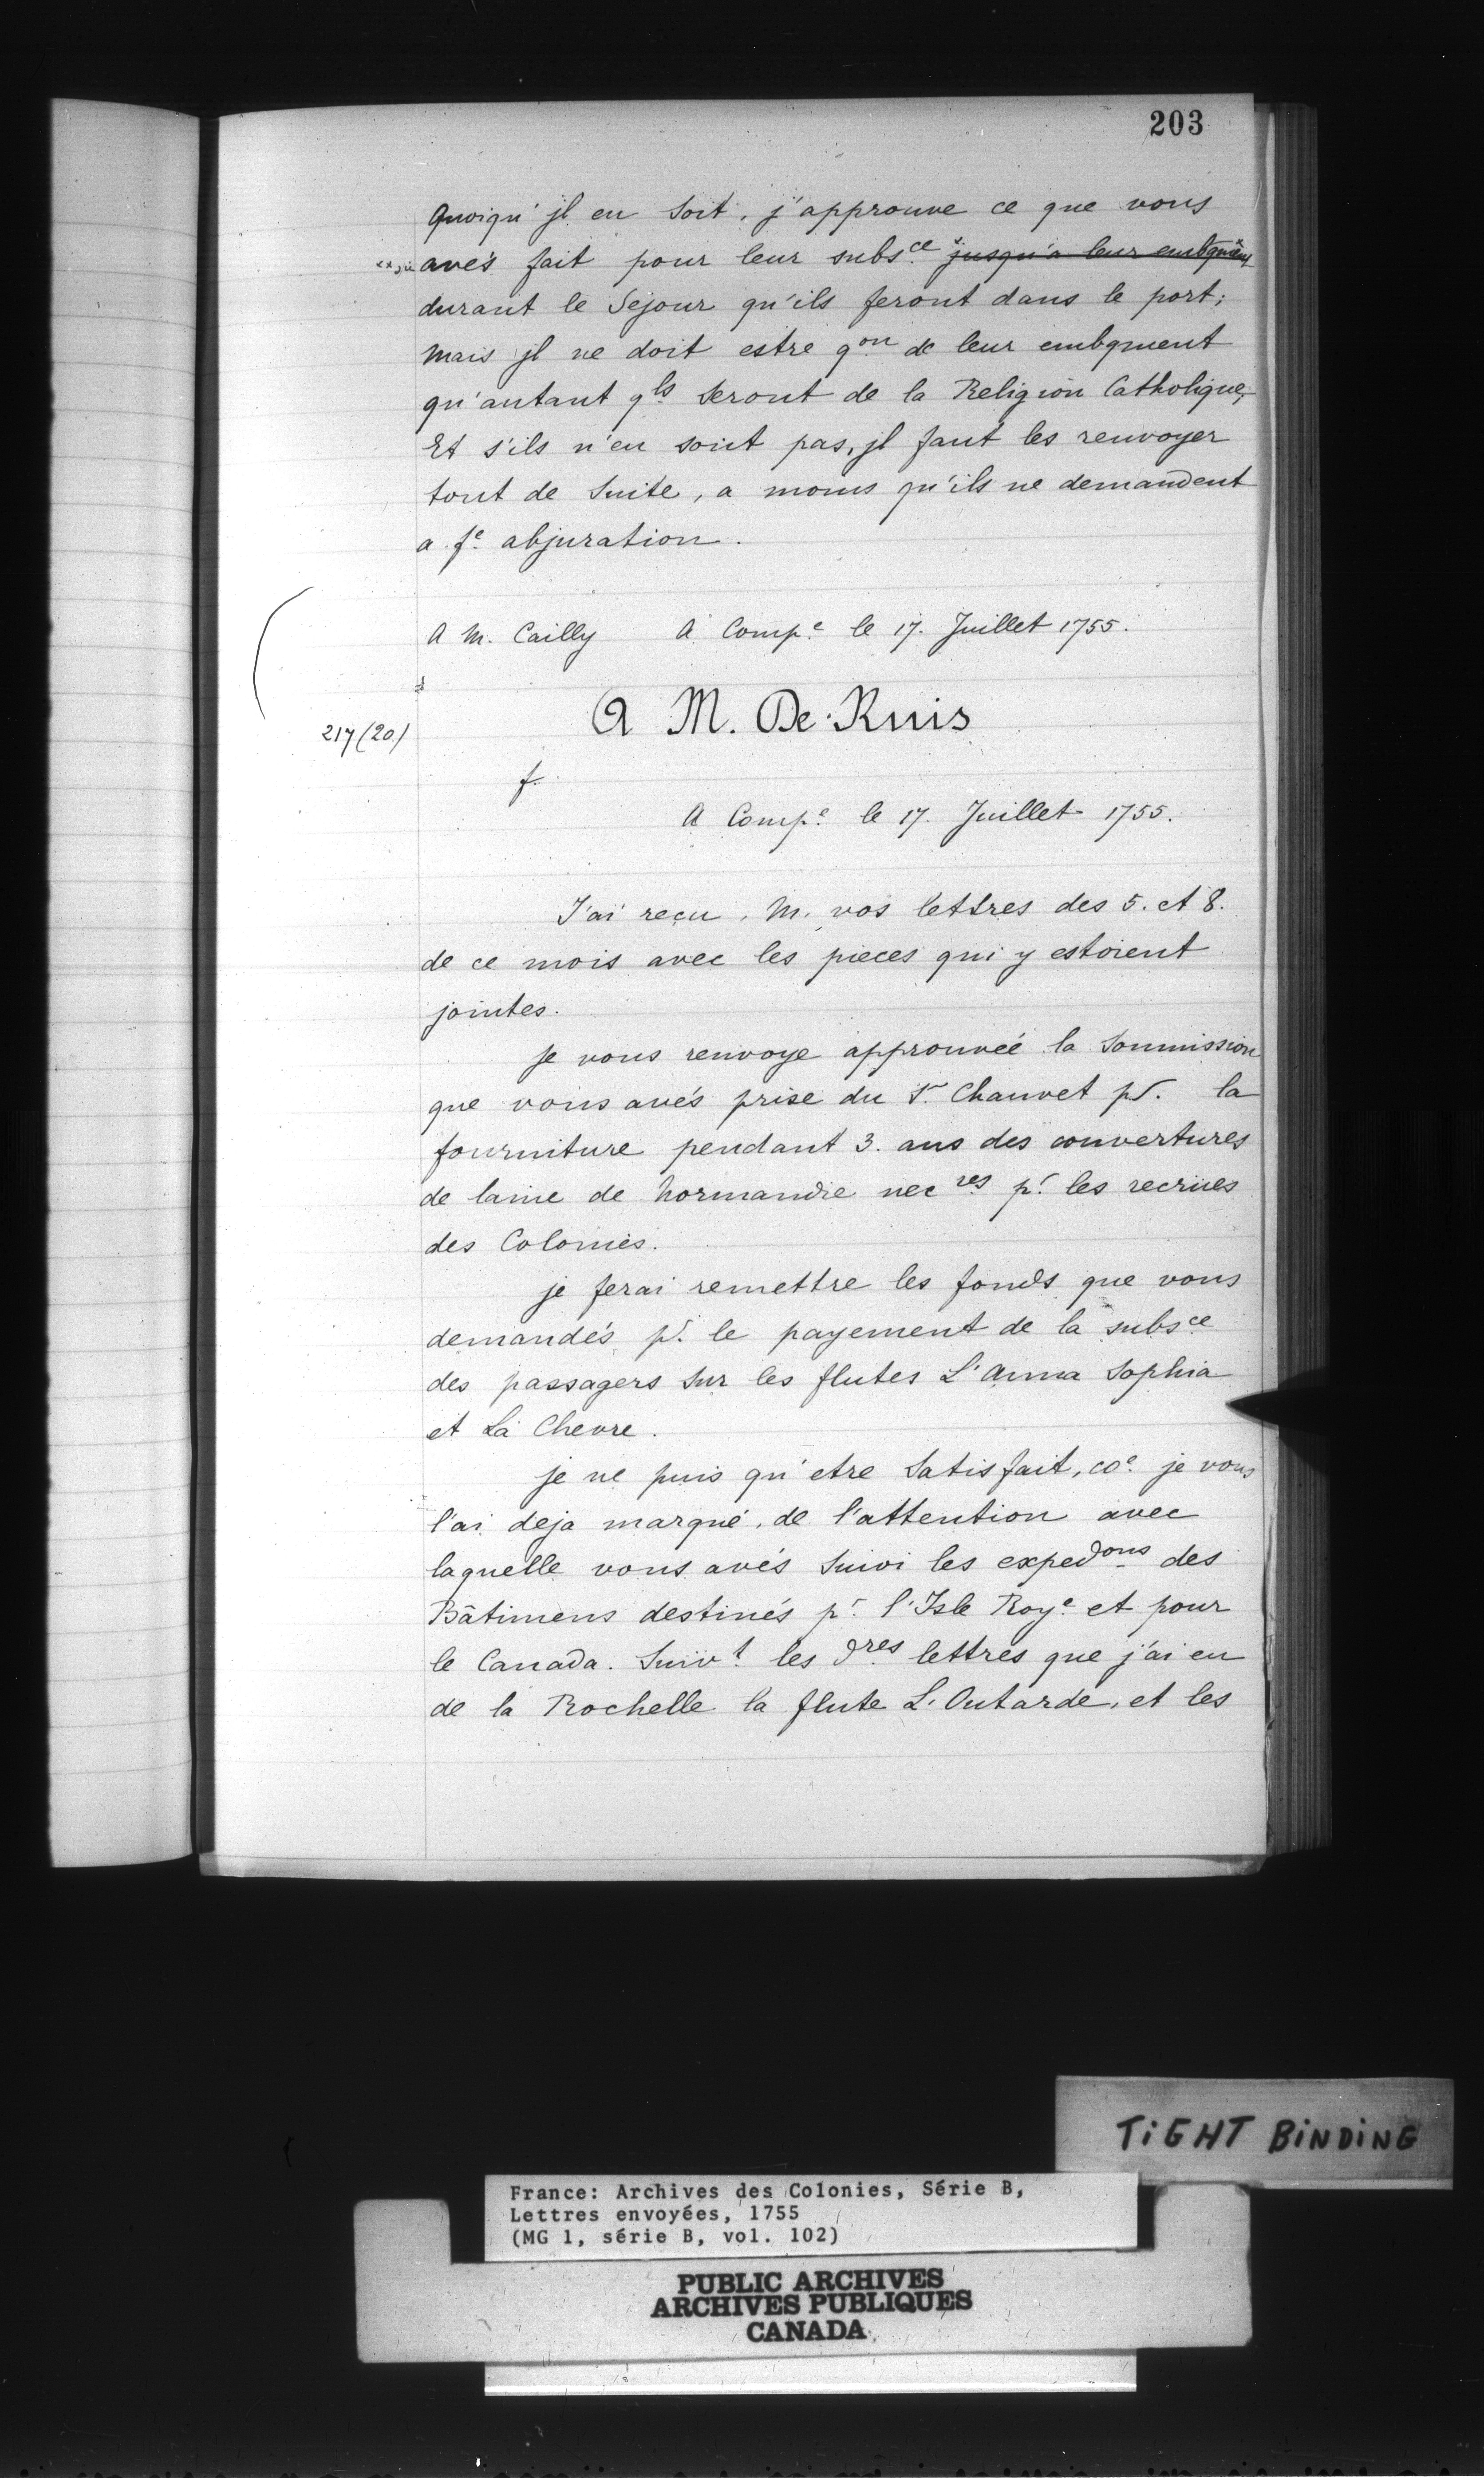 203
Quoiqu'jl en soit, j'approuve ce que vous
avés fait pour leur subs.ce jusqu'a leur embqment
durant le Sejour qu'ils feront dans le port;
Mais jl ne doit estre qon de leur embqment
qu'autant qls seront de la Religion Catholique,
Et s'ils n'en sont pas, jl faut les renvoyer
tout de suite, a moins qu'ils ne demandent
a fe. abjuration.
A M. Cailly A Comp.e le 17. Juillet 1755.
A M. De Ruis
217 (20)
f.
A Comp.e le 17. Juillet 1755.
J'ai reçu, M. vos lettres des 5. et 8.
de ce mois avec les pieces qui y estoient
jointes.
je vous renvoye approuvée la soumission
que vous avés prise du Sr. Chauvet pr. la
fourniture pendant 3. ans des couvertures
de laine de Normandie necres pr. les recrües
des Colonies.
je ferai remettre les fonds que vous
demandés pr. le payement de la subsce
des passagers sur les flutes L'Anna Sophia
et La Chevre.
je ne puis qu'etre satisfait, coe. je vous
l'ai deja marqué, de l'attention avec
laquelle vous avés suivi les expedons des
Bâtimens destinés pr. l'Isle Roye. et pour
le Canada. Suivt. les dres lettres que j'ai eu
de la Rochelle la flute L'Outarde, et les
TIGHT BINDING
France: Archives des Colonies, Série B,
Lettres envoyées, 1755
(MG 1, série B, vol. 102)
PUBLIC ARCHIVES
ARCHIVES PUBLIQUES
CANADA